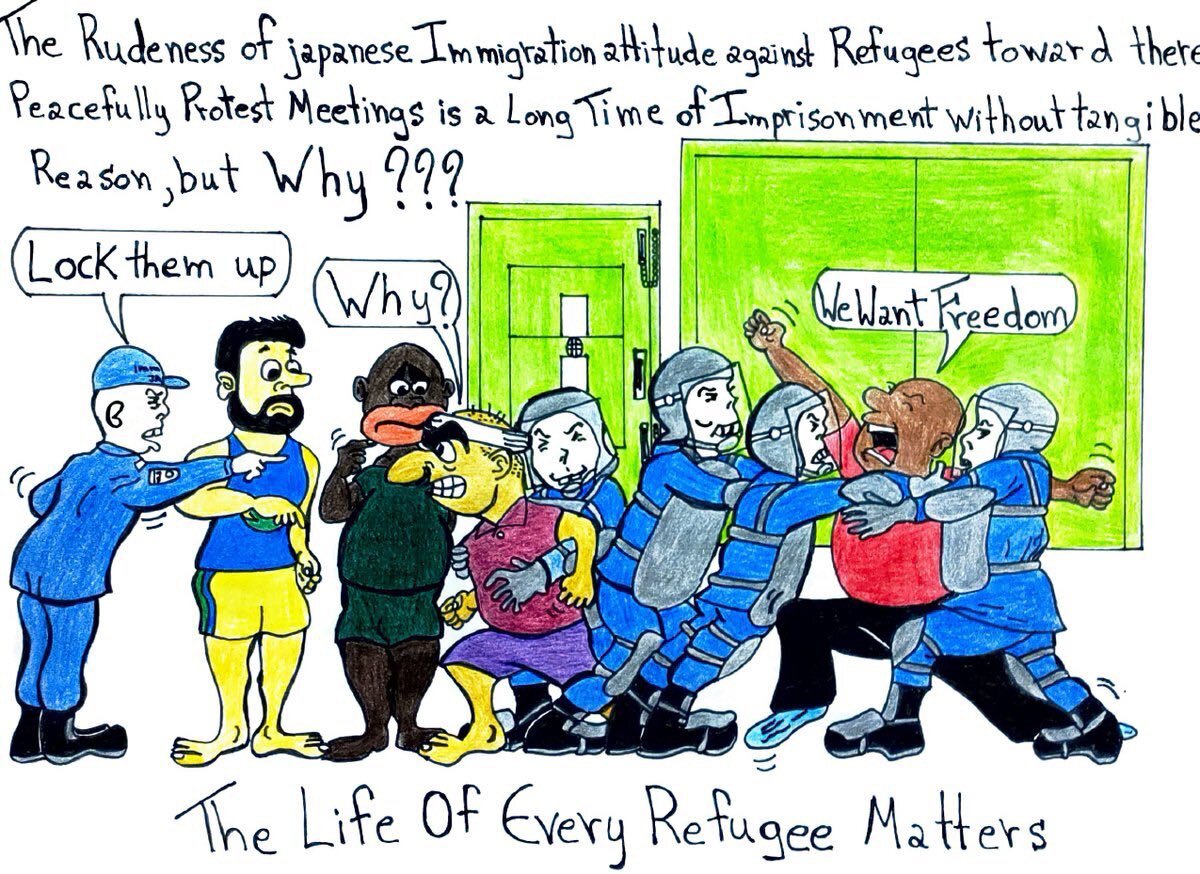 The Rudeness of japanese Immigration attitude against Refugees toward there
Peacefully Protest Meetings is a Long Time of Imprisonment without tangible
Reason, but Why ???
Lock them up
Why?
We Want Freedom
The Life Of Every Refugee Matters